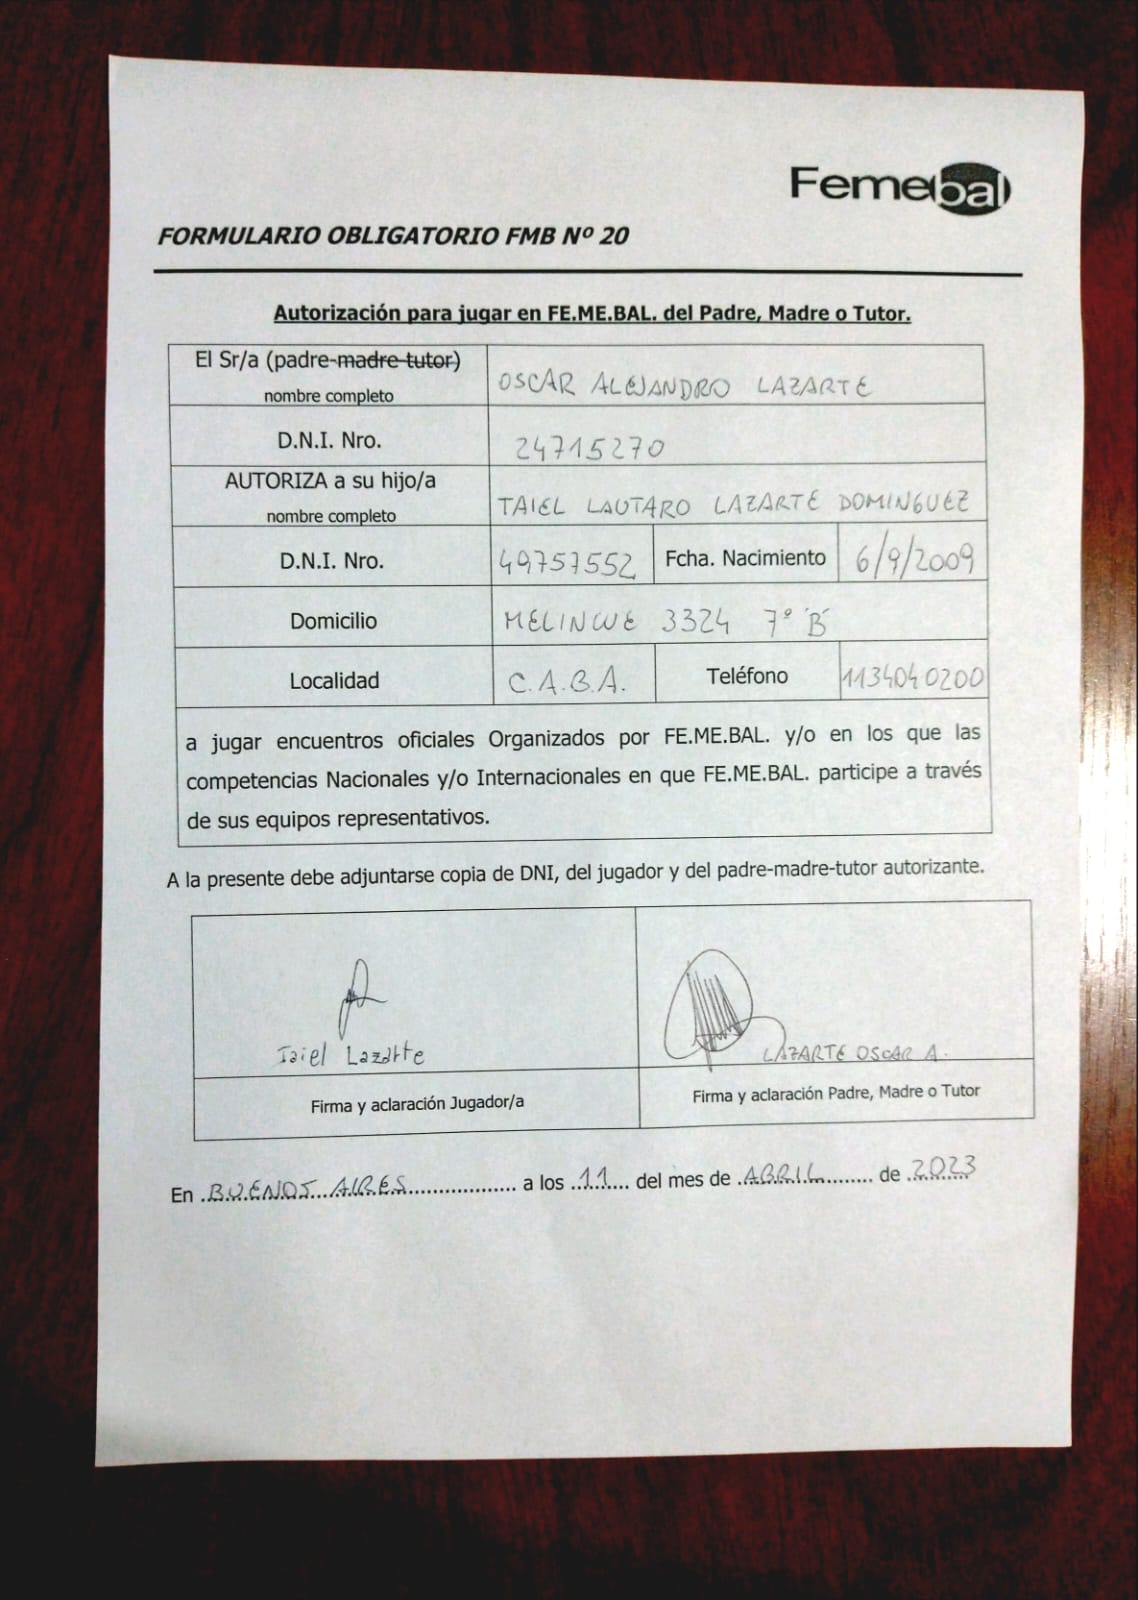 Femebal
FORMULARIO OBLIGATORIO FMB Nº 20
Autorización para jugar en FE.ME.BAL. del Padre, Madre o Tutor.
El Sr/a (padre-madre-tutor)
nombre completo
OSCAR ALEJANDRO LAZARTE
D.N.I. Nro.
24715270
AUTORIZA a su hijo/a
nombre completo
TAIEL LAUTARO LAZARTE DOMINGUEZ
D.N.I. Nro. 49757552 Fcha. Nacimiento 6/9/2009
Domicilio MELINCUE 3324 7º "B"
Localidad C.A.B.A. Teléfono 1134040200
a jugar encuentros oficiales Organizados por FE.ME.BAL. y/o en los que las
competencias Nacionales y/o Internacionales en que FE.ME.BAL. participe a través
de sus equipos representativos.
A la presente debe adjuntarse copia de DNI, del jugador y del padre-madre-tutor autorizante.
Taiel Lazarte
LAZARTE OSCAR A.
Firma y aclaración Jugador/a
Firma y aclaración Padre, Madre o Tutor
En BUENOS AIRES a los 11 del mes de ABRIL de 2023